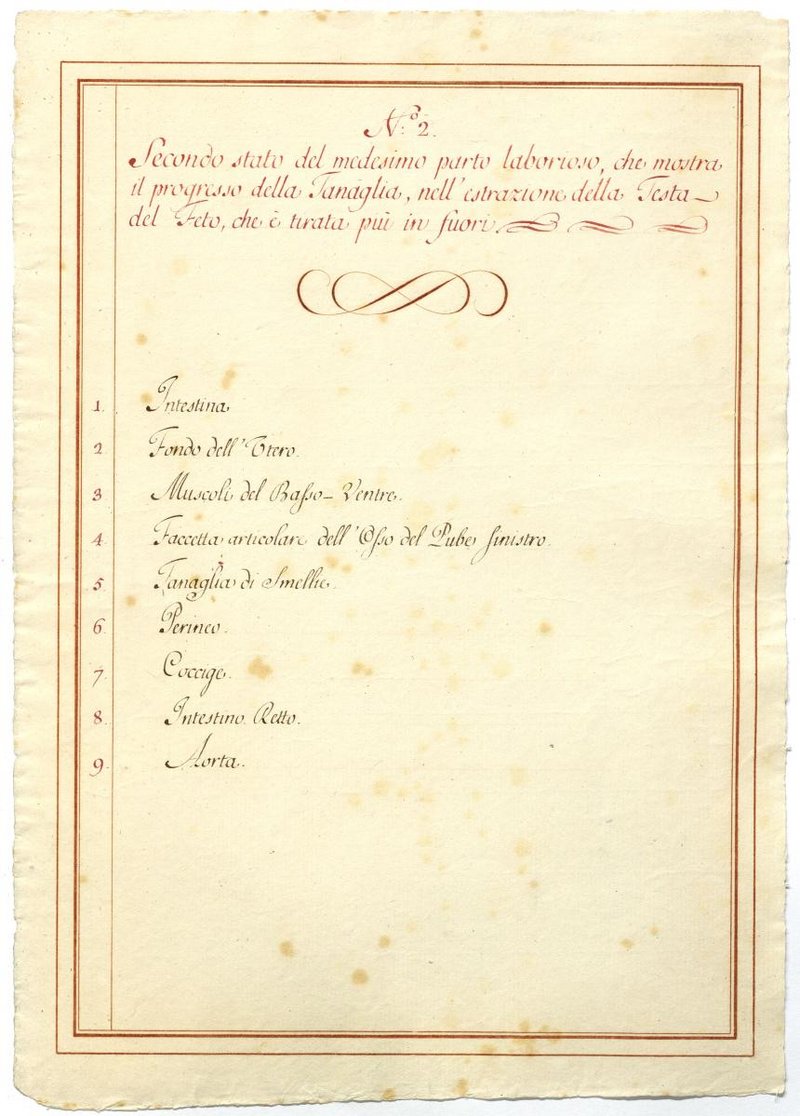 N:º 2.
Secondo stato del medesimo parto laborioso, che mostra
il progresso della Tanaglia, nell'estrazione della Testa
del Feto, che è tirata più in fuori
1. Intestina
2 Fondo dell'Utero.
3 Muscoli del Basso-Ventre.
4. Faccetta articolare dell'Osso del Pube sinistro.
5 Tanaglia di Smellie.
6. Perineo.
7. Coccige.
8. Intestino Retto.
9. Aorta.